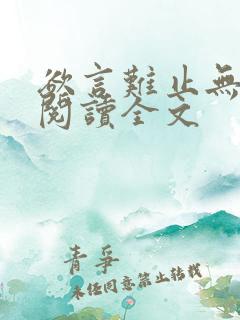 欲言難止無
閱讀全文
青爭
未经同意禁止转载